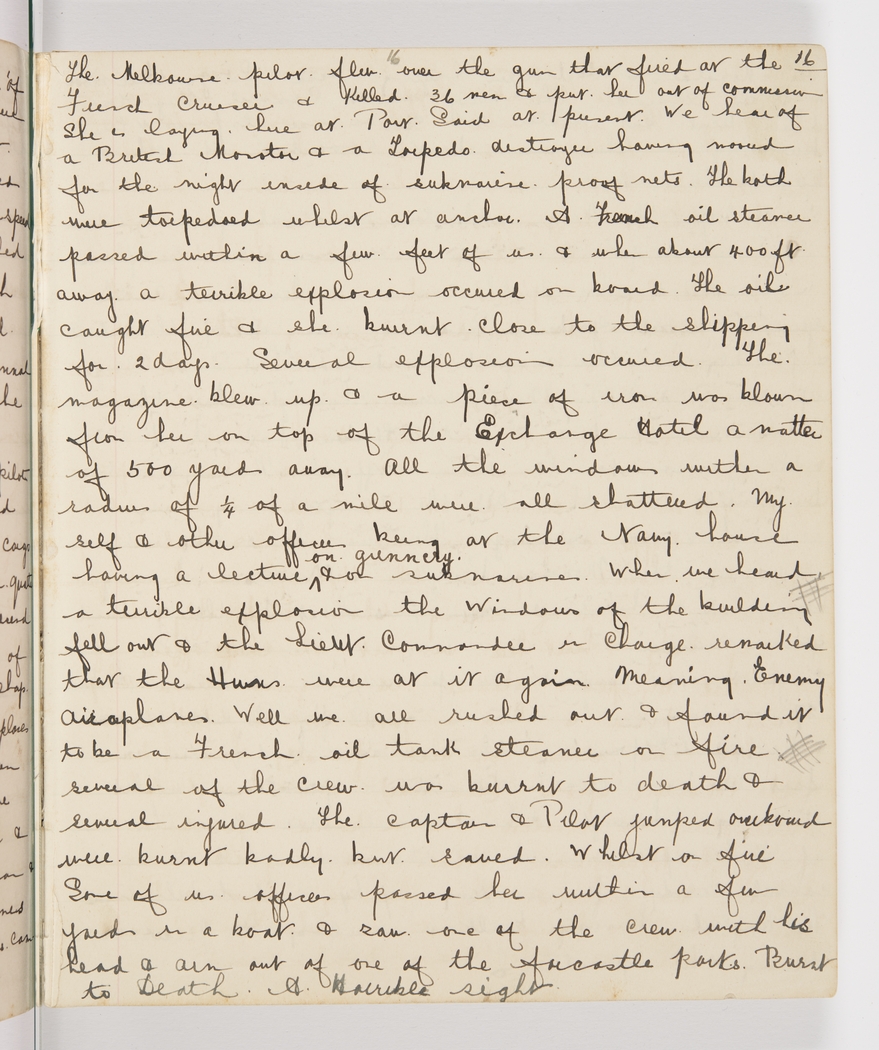 16
The. Melbourne. pilot. flew. over the gun that fired at the 16
French Cruiser & Killed. 36 men & put. her out of commission
She is laying. here at. Port. Said at. present. We hear of
a British Monitor & a Torpedo. destroyer having moored
for the night inside of. submarine. proof nets. The both
were torpedoed whilst at anchor. A. French oil steamer
passed within a few. feet of us. & when about 400 ft.
away. a terrible explosion occured on board. The oil
caught fire & she. burnt. close to the shipping
for. 2 days. Several explosion occured. The.
magazine. blew. up. & a piece of iron was blown
from her on top of the Exchange Hotel a matter
of 500 yards away. All the windows within a
radius of ¼ of a mile were. all shattered. My.
self & other officers being at the Navy. house
on. gunnery.
having a lecture, & on submarines. When. we heard
a terrible explosion the Windows of the building
fell out & the Lieut. Commander in Charge. remarked
that the Huns. were at it again. Meaning. Enemy
Airaplanes. Well we. all rushed out. & found it
to be a French. oil tank steamer on fire
several of the crew. was burnt to death &
several injured. The. captain & Pilot jumped overboard
were. burnt badly. but. saved. Whilst on fire
Some of us. officers passed her within a few
yards in a boat. & saw. one of the crew. with his
head & arm out of one of the forcastle ports. Burnt
to Death. A. Horrible sight.